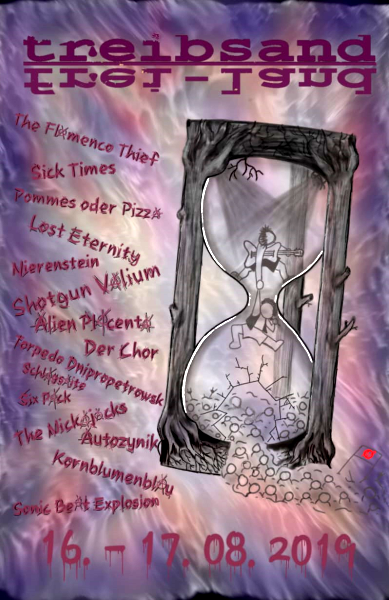 treibsand
The Flamence Thief
Sick Times
Pommes oder Pizza
Lost Eternity
Nierenstein
Shotgun Valium
Alien Placenta
Der Chor
Torpedo Dnipropetrowsk
Schlagsaite
Six Pack
The Nickajacks
Autozynik
Kornblumenblau
Sonic Beat Explosion
16. - 17. 08. 2019